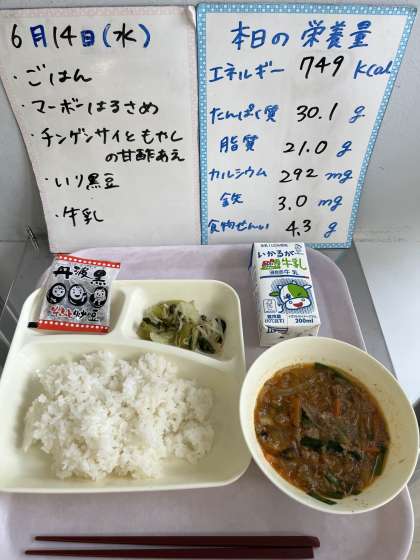 6月14日(水)
・ごはん
・マーボーはるさめ
・チンゲンサイともやし
の甘酢あえ
・いり黒豆
・牛乳
本日の栄養量
エネルギー 749 kcal
たんぱく質 30.1 g
脂質 21.0 g
カルシウム 292 mg
鉄 3.0 mg
食物せんい 4.3 g
丹波黒
いかるが
牛乳
200ml